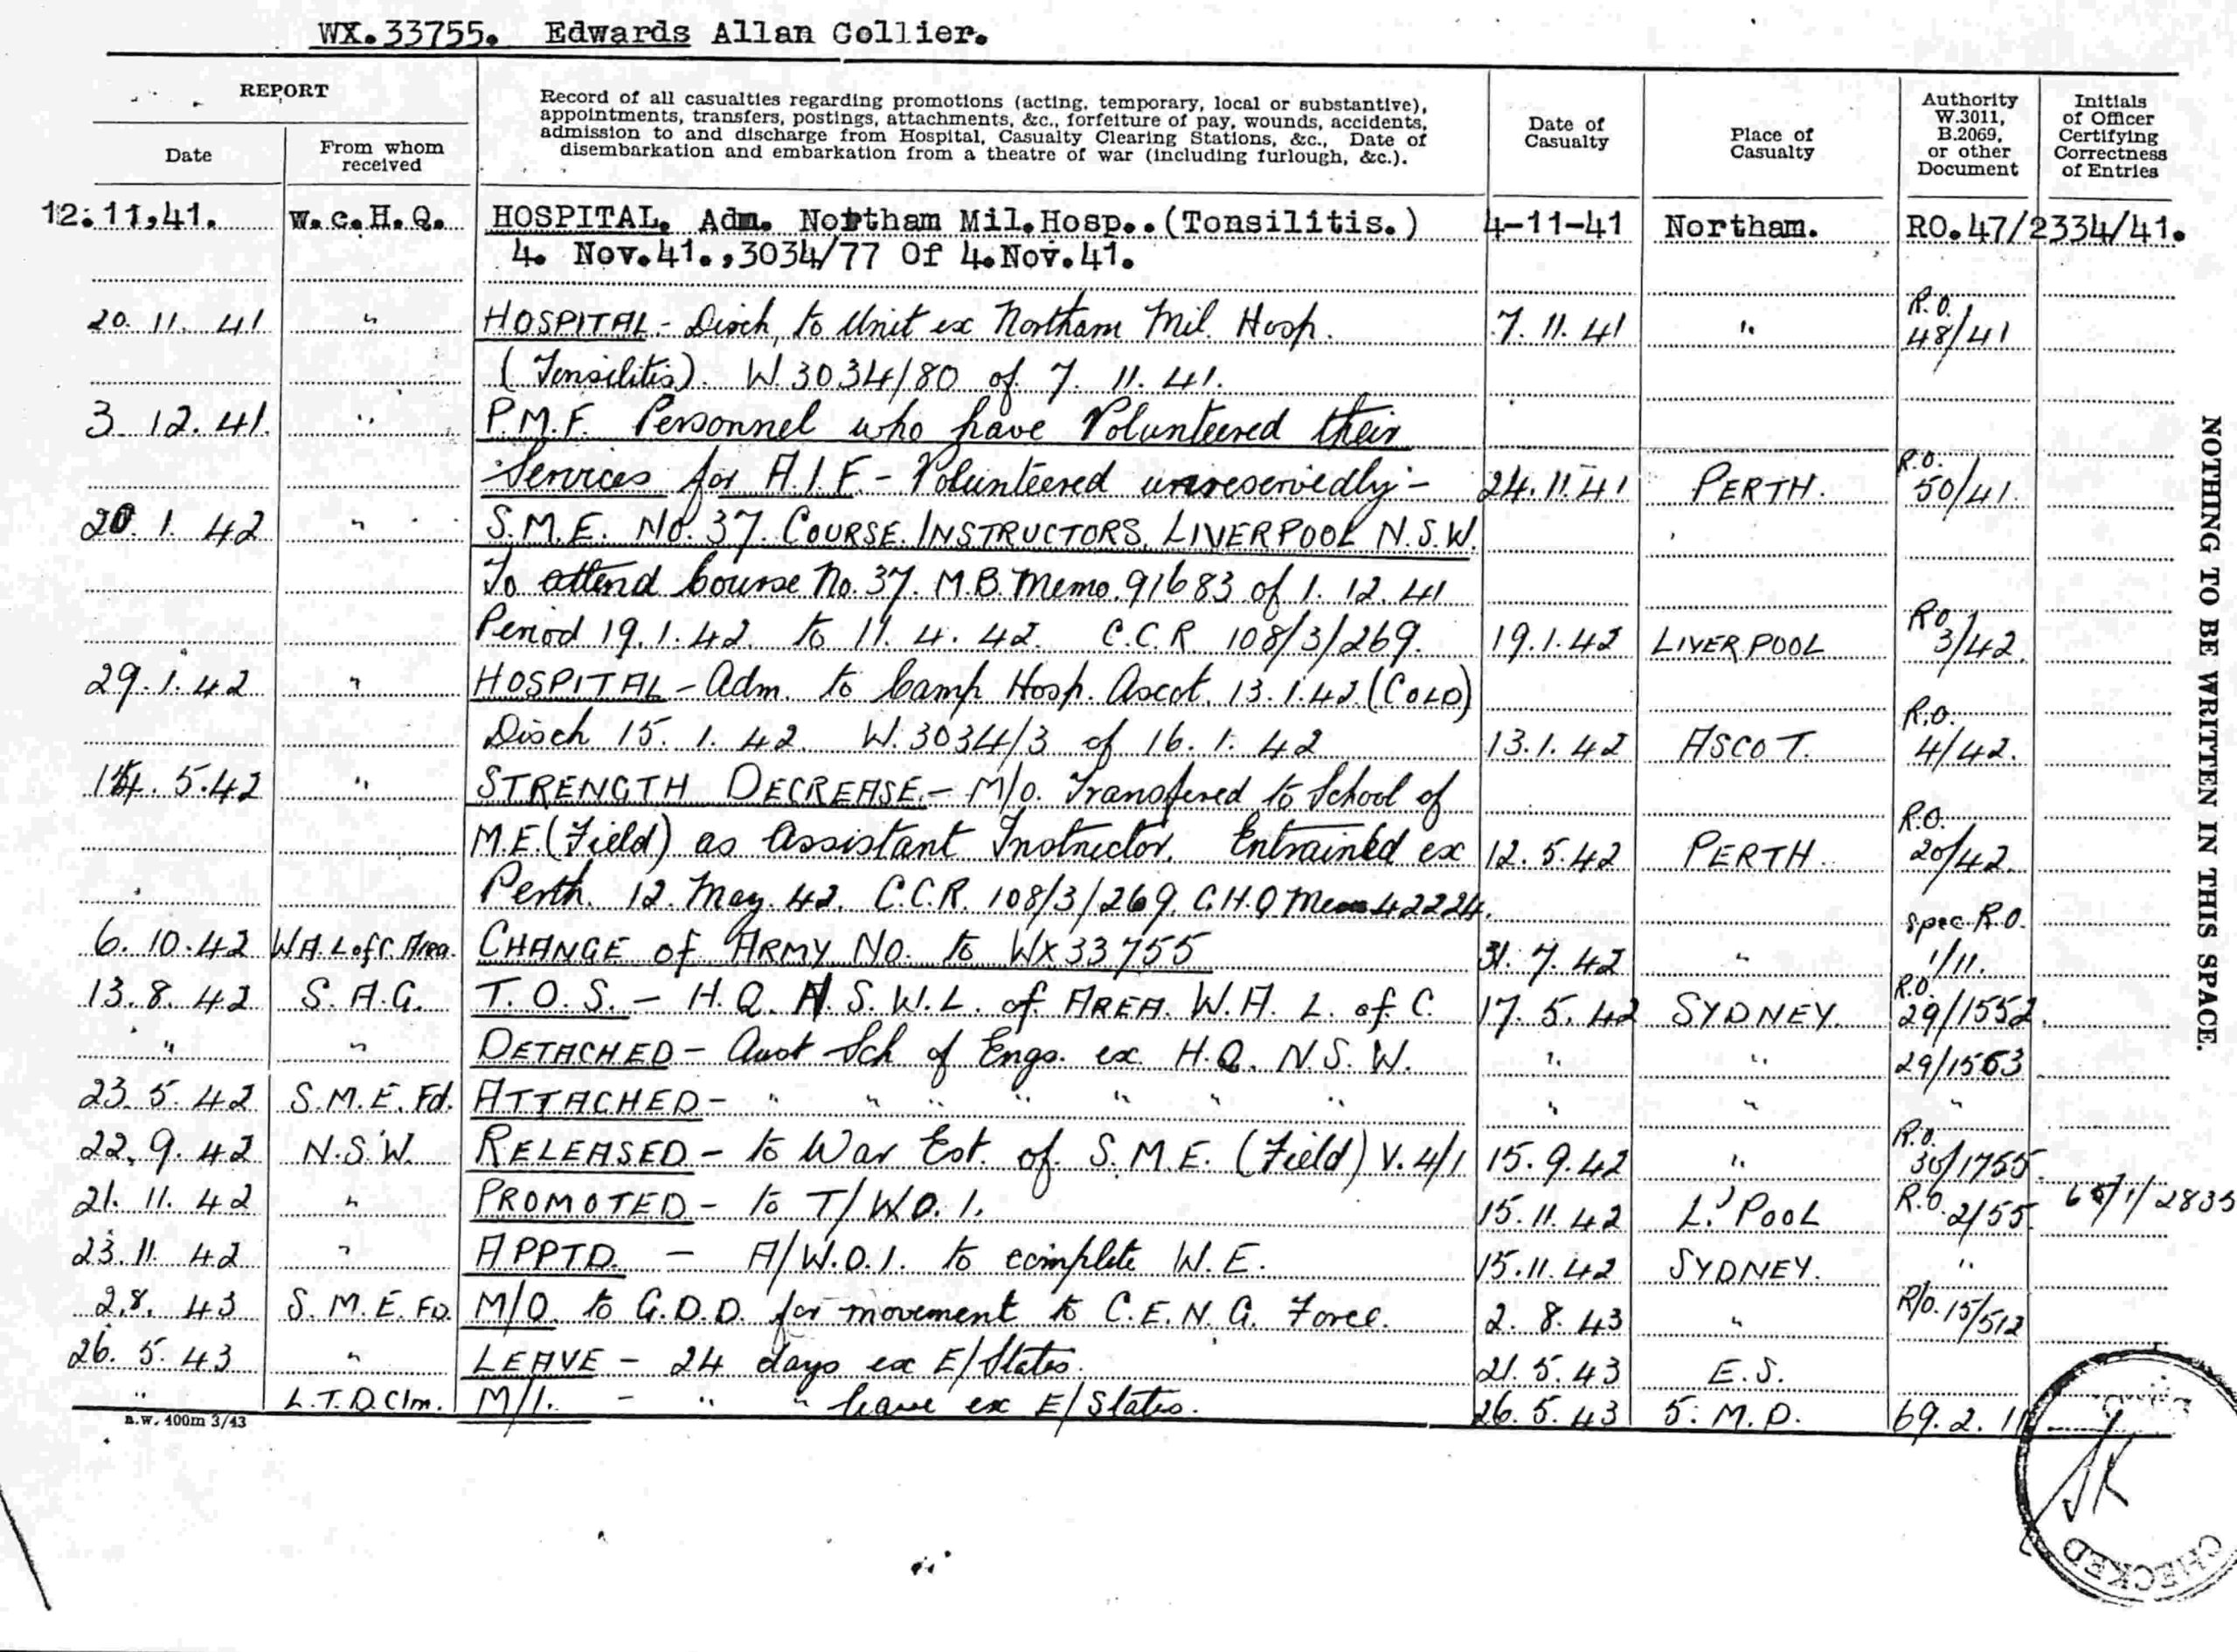 WX.33755. Edwards Allan Collier.
REPORT
Date
From whom received
Record of all casualties regarding promotions (acting, temporary, local or substantive),
appointments, transfers, postings, attachments, &c., forfeiture of pay, wounds, accidents,
admission to and discharge from Hospital, Casualty Clearing Stations, &c., Date of
disembarkation and embarkation from a theatre of war (including furlough, &c.).
Date of Casualty
Place of Casualty
Authority W.3011, B.2069, or other Document
Initials of Officer Certifying Correctness of Entries
12.11,41. W.C.H.Q. HOSPITAL. Adm. Northam Mil.Hosp..(Tonsilitis.) 4-11-41 Northam. RO.47/2334/41.
4. Nov.41.,3034/77 Of 4.Nov.41.
20. 11. 41 " HOSPITAL - Disch to Unit ex Northam Mil. Hosp. 7. 11. 41 " R.O. 48/41
(Tonsilitis). W.3034/80 of 7. 11. 41.
3. 12. 41. " P.M.F. Personnel who have Volunteered their
Services for A.I.F. - Volunteered unreservedly - 24.11.41 PERTH. R.O. 50/41.
20. 1. 42 " S.M.E. No. 37. COURSE. INSTRUCTORS. LIVERPOOL N.S.W.
To attend Course No. 37. M.B. Memo. 91683 of 1. 12. 41
Period 19.1.42. to 11. 4. 42. C.C.R. 108/3/269. 19.1.42 LIVERPOOL RO 3/42.
29.1.42 " HOSPITAL - Adm. to Camp Hosp. Ascot. 13.1.42. (COLD)
Disch 15. 1. 42. W.3034/3 of 16. 1. 42 13.1.42 ASCOT. R.O. 4/42.
14. 5.42 " STRENGTH DECREASE. - M/O. Transfered to School of
M.E. (Field) as Assistant Instructor. Entrained ex 12. 5. 42 PERTH. R.O. 20/42.
Perth. 12. May. 42. C.C.R. 108/3/269. G.H.Q Memo 42224.
6. 10. 42 W.A. L of C. Area. CHANGE of ARMY NO. to WX33755 31. 7. 42 " Spec. R.O. 1/11.
13. 8. 42 S. A. G. T. O. S. - H. Q. N. S. W. L. of AREA. W. A. L. of C. 17. 5. 42 SYDNEY. R.O. 29/1552.
" " DETACHED - Aust Sch of Engs. ex H. Q. N. S. W. " " 29/1563
23. 5. 42 S.M.E. Fd. ATTACHED - " " " " " " " " " "
22. 9. 42 N.S.W. RELEASED - to War Est. of S. M. E. (Field) V. 4/1 15. 9. 42 " R.O. 30/1755.
21. 11. 42 " PROMOTED - to T/WO. 1. 15. 11. 42 L'POOL R.O. 2/55.
23. 11. 42 " APPTD. - A/W.O.1. to complete W. E. 15. 11. 42 SYDNEY. "
2.8. 43 S. M. E. FD. M/O. to G.D.D. for movement to C. E. N. G. Force. 2. 8. 43 " R/O. 15/512
26. 5. 43 " LEAVE - 24 days ex E/States. 21. 5. 43 E. S.
" L.T.D. Clm. M/I. - " " leave ex E/States. 26. 5. 43 5. M. D. 69. 2. 11
A.W. 400m 3/43
NOTHING TO BE WRITTEN IN THIS SPACE.
CHECKED